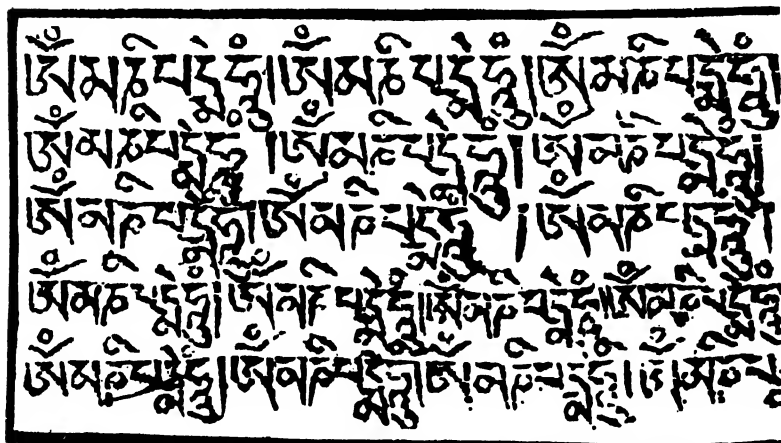 ཨོཾམཎིཔདྨེཧཱུྃ།ཨོཾམཎིཔདྨེཧཱུྃ།ཨོཾམཎིཔདྨེཧཱུྃ
ཨོཾམཎིཔདྨེཧཱུྃ།ཨོཾམཎིཔདྨེཧཱུྃ།ཨོཾམཎིཔདྨེཧཱུྃ།
ཨོཾམཎིཔདྨེཧཱུྃ།ཨོཾམཎིཔདྨེཧཱུྃ།ཨོཾམཎིཔདྨེཧཱུྃ།
ཨོཾམཎིཔདྨེཧཱུྃ།ཨོཾམཎིཔདྨེཧཱུྃ།།ཨོཾམཎིཔདྨེཧཱུྃ།།ཨོཾམཎིཔདྨེཧཱུྃ
ཨོཾམཎིཔདྨེཧཱུྃ།ཨོཾམཎིཔདྨེཧཱུྃ།ཨོཾམཎིཔདྨེཧཱུྃ།ཨོཾམཎིཔ